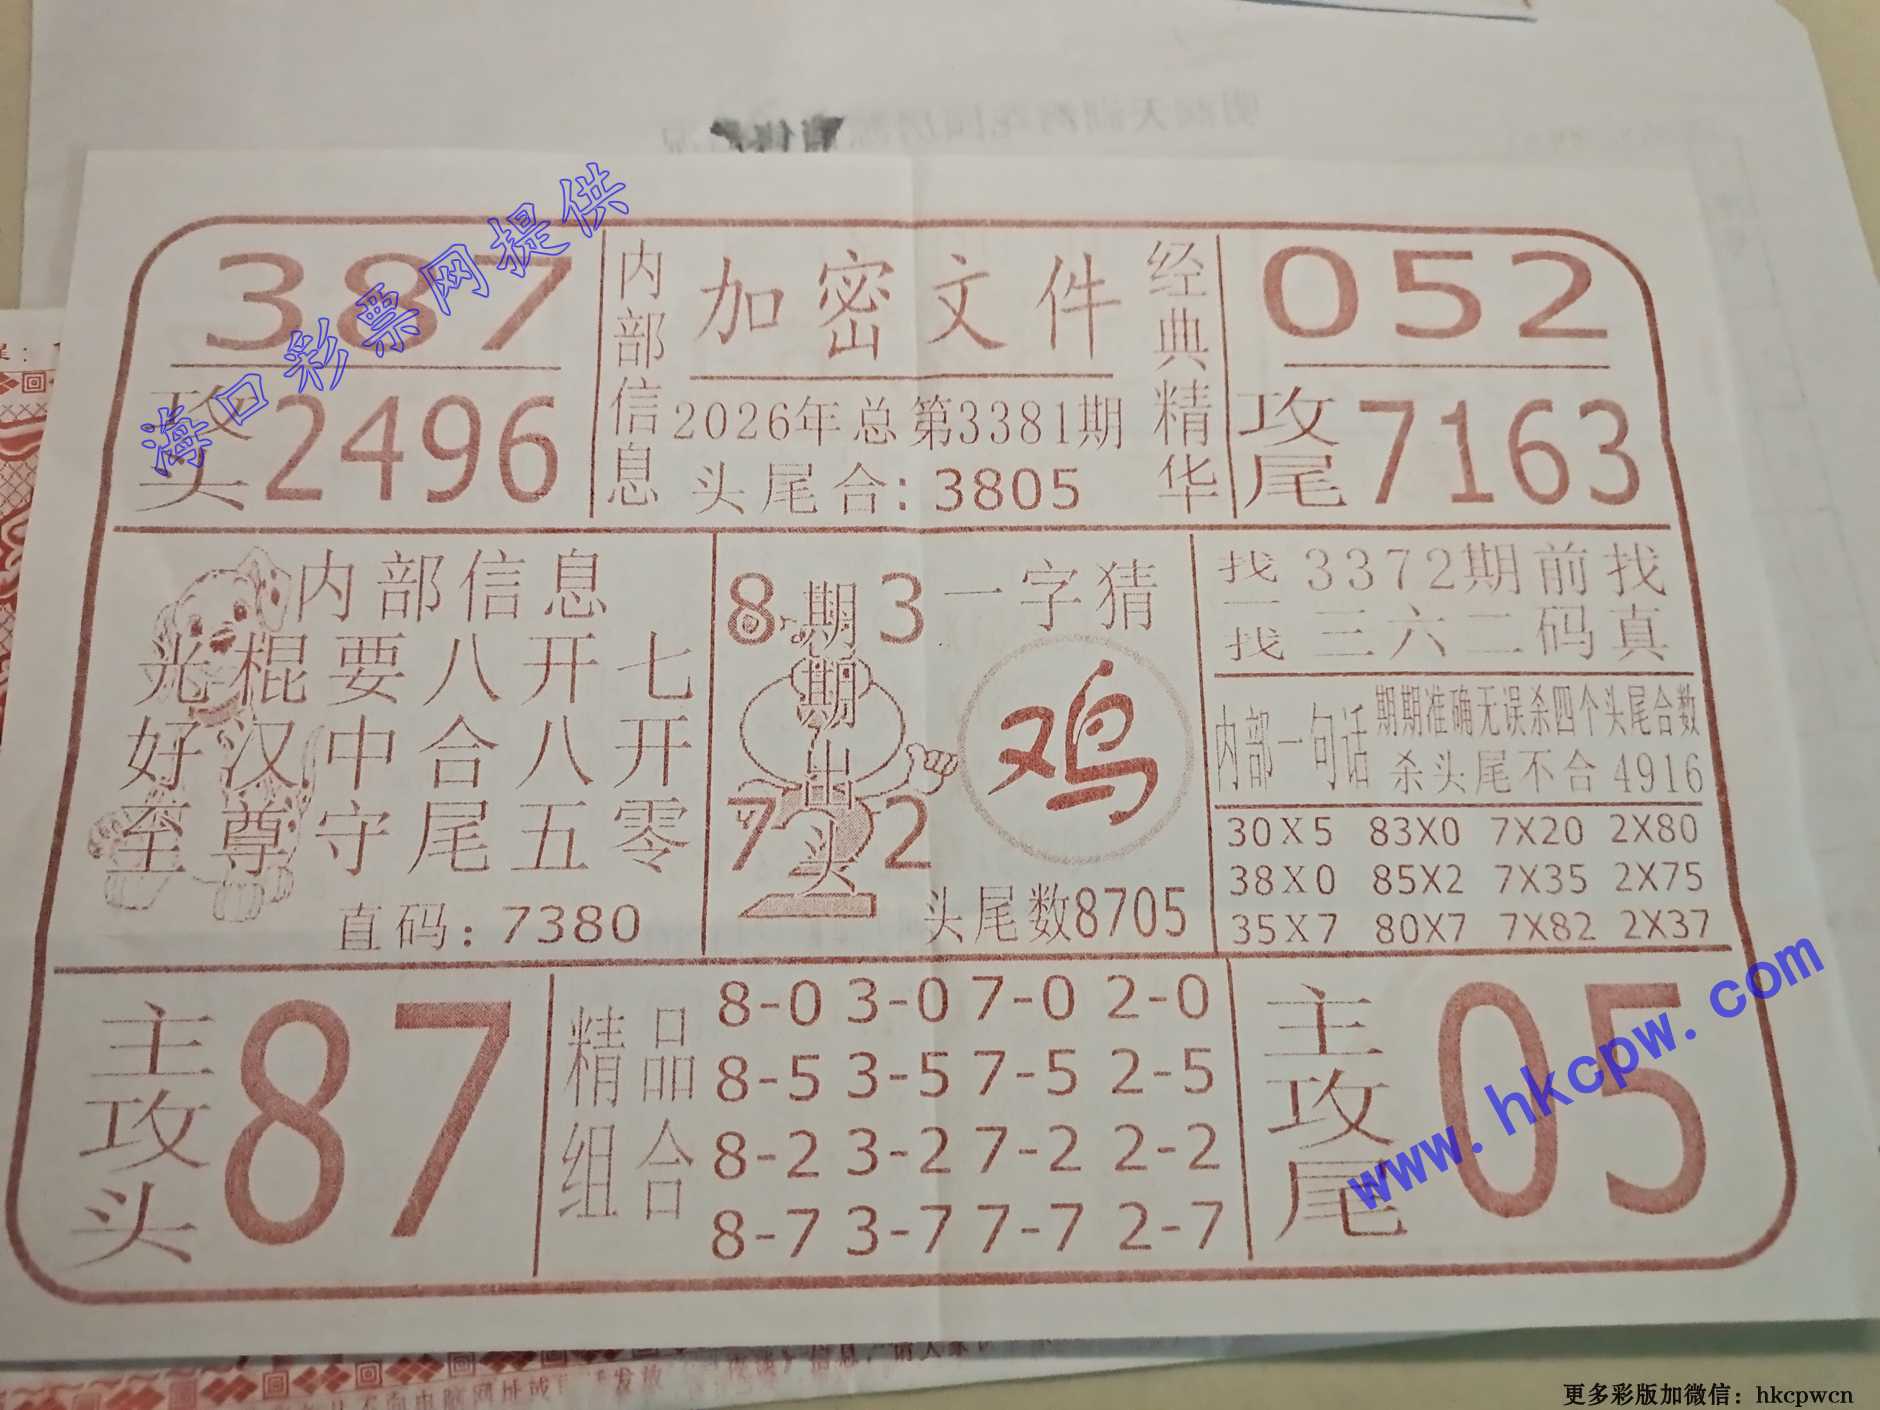 387
攻头 2496
内部信息
加密文件
2026年总第3381期
头尾合：3805
经典精华
052
攻尾 7163
内部信息
光棍要八开七
好汉中合八开
至尊守尾五零
直码：7380
8 3
期期出头
7 2
一字猜
鸡
头尾数8705
找一找
3372期前找
三六二码真
内部一句话
期期准确无误杀四个头尾合数
杀头尾不合4916
30X5 83X0 7X20 2X80
38X0 85X2 7X35 2X75
35X7 80X7 7X82 2X37
主攻头 87
精品组合
8-0 3-0 7-0 2-0
8-5 3-5 7-5 2-5
8-2 3-2 7-2 2-2
8-7 3-7 7-7 2-7
主攻尾 05
海口彩票网提供
www.hkcpw.com
更多彩版加微信：hkcpwcn